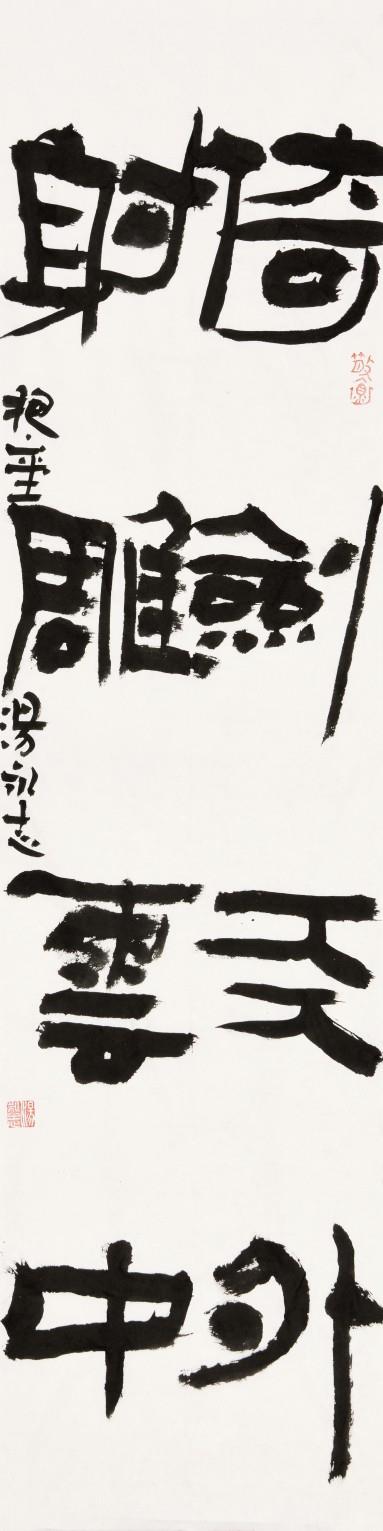 倚劍天外
射雕雲中
湯永志